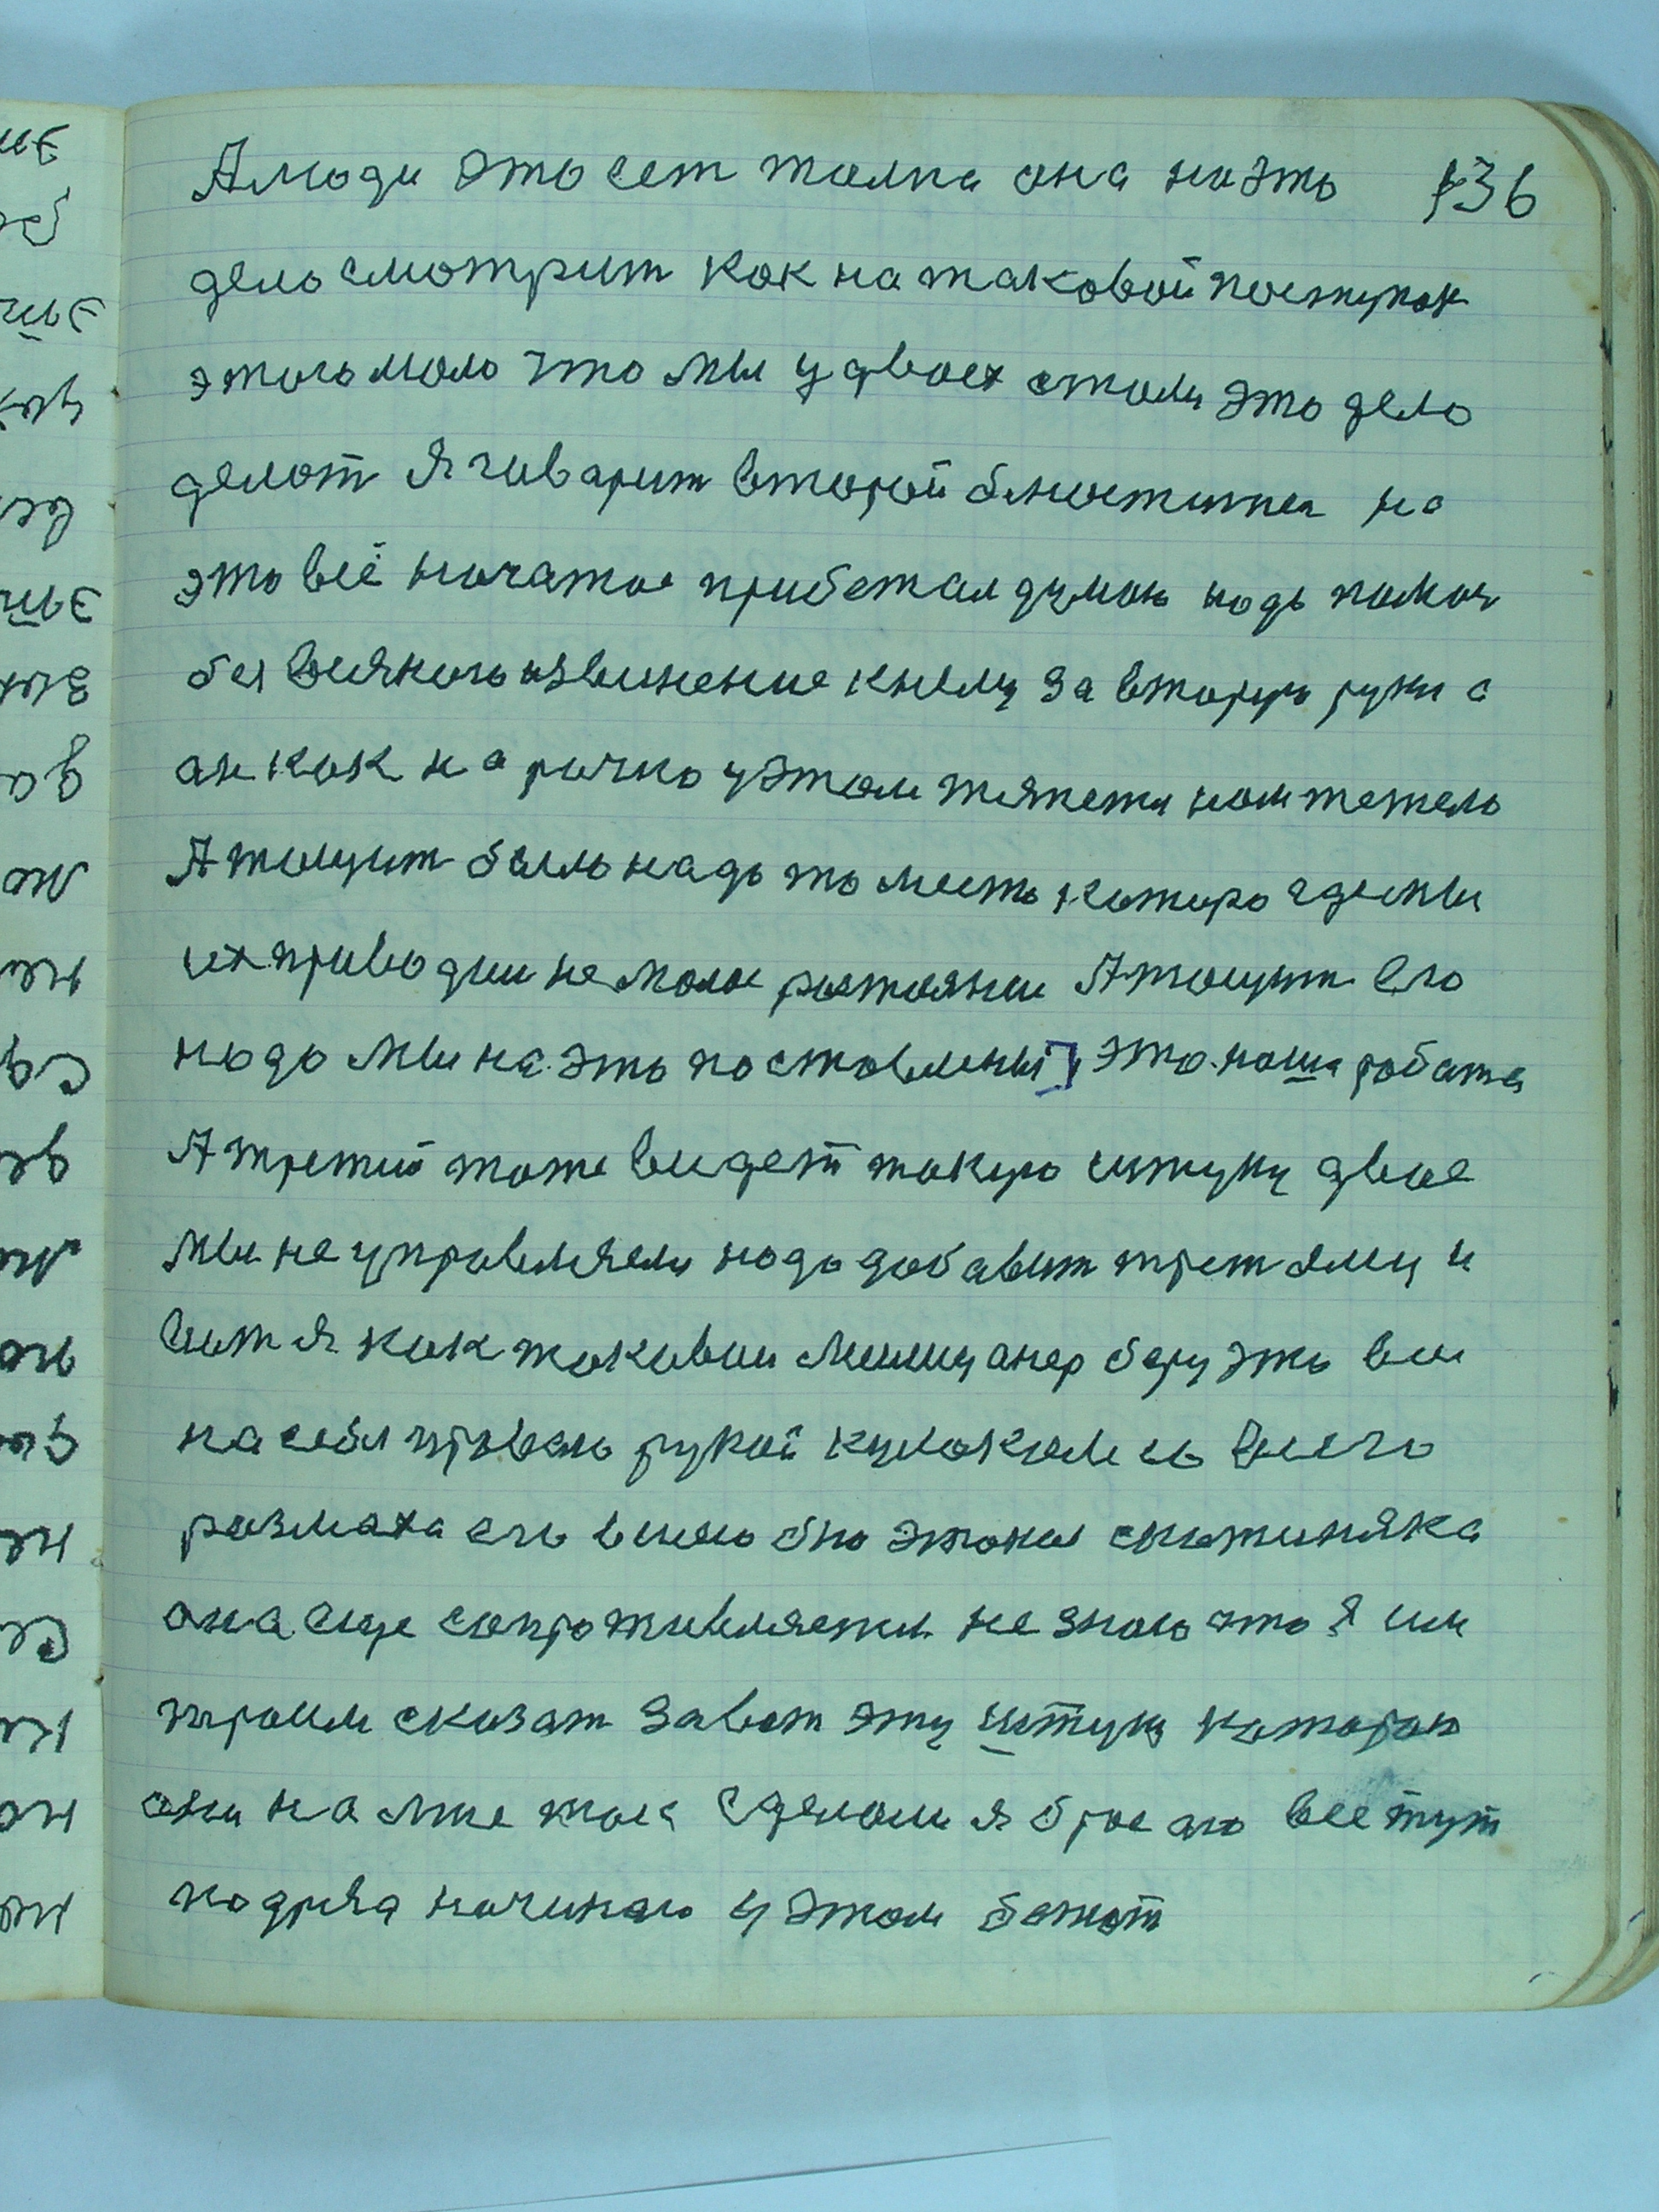 А люди это сеть толпа она на эть 136
дело смотрит как на таковой поступок
этого мало что мы у двоех стали это дело
делать я гаварит второй блюститель на
это всё начатое прибежал думаю надо помоч
без всякого извинение к нему за вторую руку а
он как нарочно у этом тяжести нам тежело
А тащит было надо то место которо где мы
их приводим не малое растояние А тащит его
надо мы на это поставлены это наша работа
А третий тоже видет такую штуку двое
мы не управляли надо добавит третяму и
вот я как таковои милицанер беру это все
на себя правою рукой кулаком со всего
размаха его в ухо это такая скотиняка
она еще сопротивляется не знаю что я им
чырти сказат за вот эту штуку которою
они на мне так сделали я бросаю все тут
подряд начинаю у этом бежат